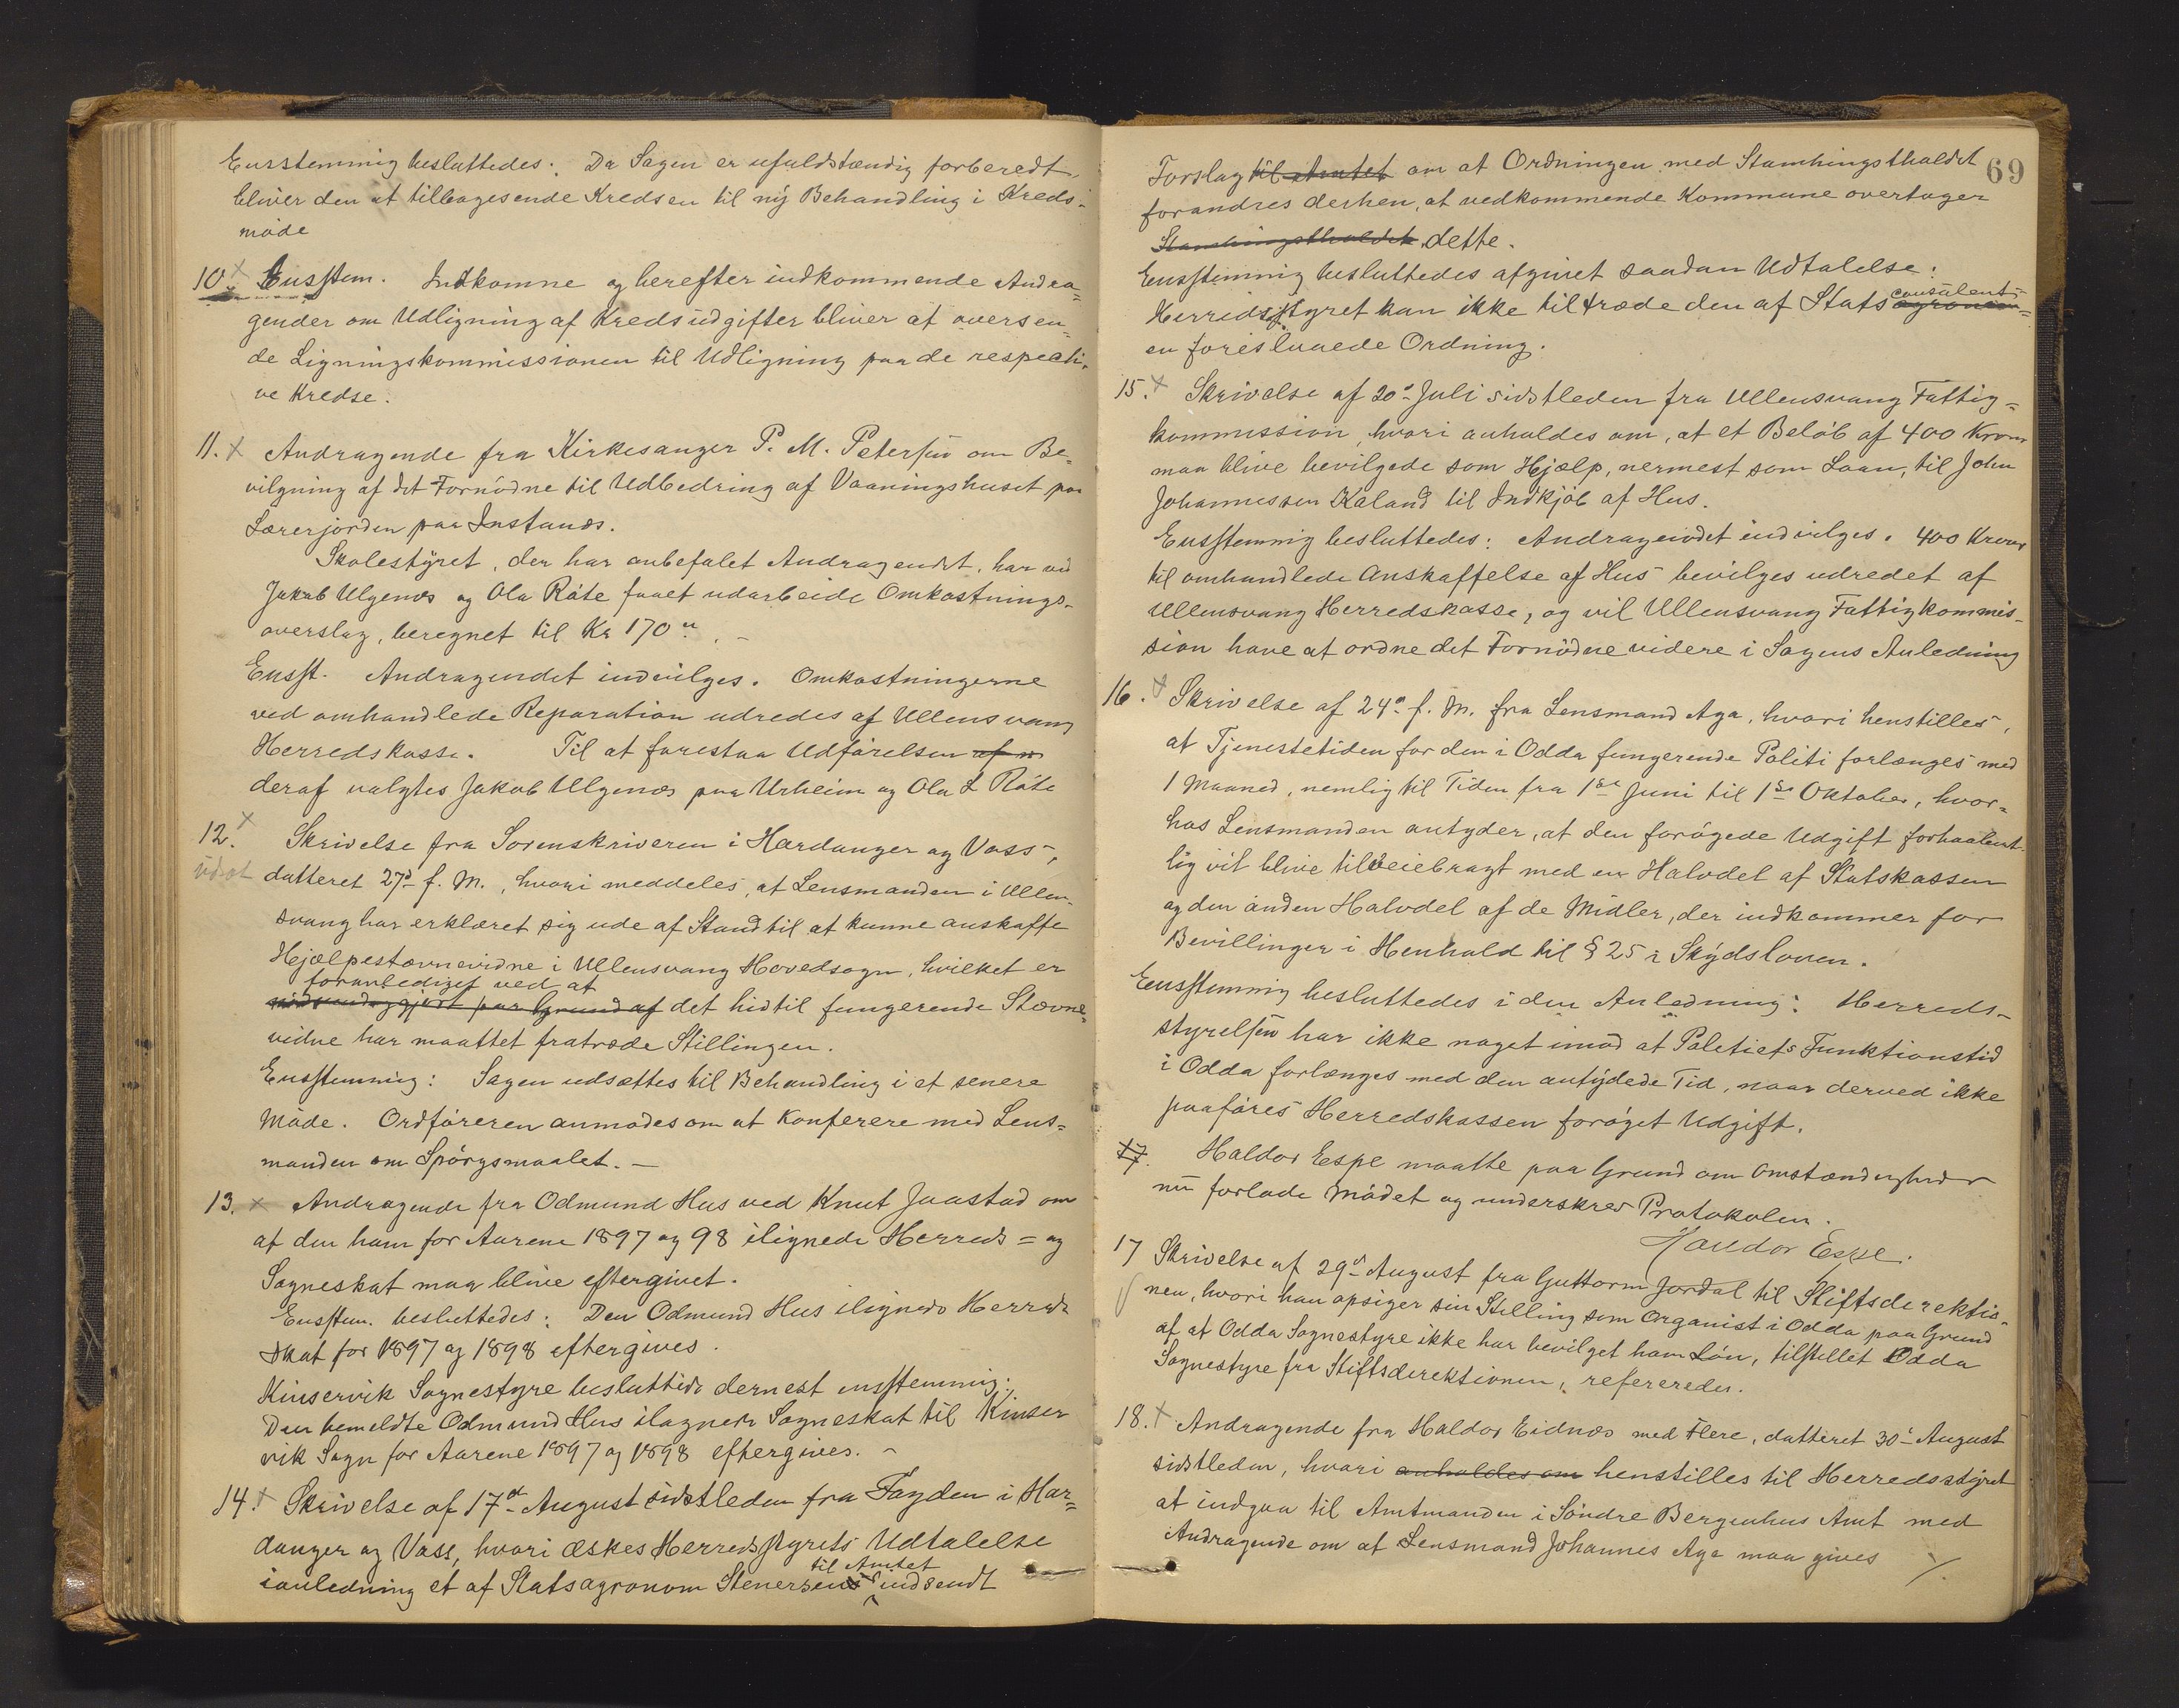 Eensstemmig besluttedes: Da Sagen er ufuldstændig forberedt,
bliver den at tilbagesende Kredsen til ny Behandling i Kreds-
møde
10. Ensstem. Indkomne og herefter indkommende Andra=
gender om Udligning af Kredsudgifter bliver at oversen=
de Ligningskommissionen til Udligning paa de respecti-
ve Kredse.
11. Andragende fra Kirkesanger P. M. Petersen om Be=
vilgning af det Fornødne til Udbedring af Vaaningshuset paa
Lærerjorden paa Instanæs.
Skolestyret, der har anbefalet Andragendet, har ved
Jakob Ulgenæs og Ola Råte faaet udarbeide Omkostnings-
overslag, beregnet til Kr 170. -
Ensst. Andragendet indvilges. Omkostningerne
ved omhandlede Reparation udredes af Ullensvang
Herredskasse. Til at forestaa Udførelsen af
deraf valgtes Jakob Ulgenæs paa Urheim og Ola L Råte
12. Skrivelse fra Sorenskriveren i Hardanger og Voss,
udsat datteret 27d f. M., hvori meddeles, at Lensmanden i Ullen-
svang har erklæret sig ude af Stand til at kunne anskaffe
Hjælpestævnevidne i Ullensvang Hovedsogn, hvilket er
foranlediget ved at
nødvendiggjort paa Grund af det hidtil fungerende Stævne=
vidne har maattet fratræde Stillingen.
Ensstemmig: Sagen udsættes til Behandling i et senere
Møde. Ordføreren anmodes om at Konferere med Lens=
manden om Spørgsmaalet. -
13. Andragende fra Odmund Hus ved Knut Jaastad om
at den ham for Aarene 1897 og 98 ilignede Herreds= og
Sogneskat maa blive eftergivet.
Ensstem. besluttedes: Den Odmund Hus ilignede Herreds
skat for 1897 og 1898 eftergives.
Kinservik Sognestyre besluttede dernest ensstemmig:
Den bemeldte Odmund Hus ilagnede Sogneskat til Kinser
vik Sogn for Aarene 1897 og 1898 eftergives. -
14. Skrivelse af 17d August sidstleden fra Fogden i Har=
danger og Voss, hvori æskes Herredsstyrets Udtalelse
til Amtet
ianledning et af Statsagronom Stenersen indsendt
69
Forslag til Amtet om at Ordningen med Stamhingstholdet
forandres derhen, at vedkommende Kommune overtager
Stamhingstholdet dette.
Eensstemmig besluttedes afgivet saadan Udtalelse:
consulent-
Herredsstyret kan ikke tiltræde den af Stats agronom=
en foreslaaede Ordning.
15. Skrivelse af 20d Juli sidstleden fra Ullensvang Fattig=
kommission, hvori anholdes om, at et Beløb af 400 Kroner
maa blive bevilgede som Hjælp, nermest som Laan, til John
Johannessen Kaland til Indkjøb af Hus.
Eensstemmig besluttedes: Andragendet indvilges. 400 Kroner
til omhandlede Anskaffelse af Hus bevilges udredet af
Ullensvang Herredskasse, og vil Ullensvang Fattigkommis-
sion have at ordne det Fornødne videre i Sagens Anledning
16. Skrivelse af 24d f. M. fra Lensmand Aga, hvori henstilles,
at Tjenestetiden for den i Odda fungerende Politi forlænges med
1 Maaned, nemlig til Tiden fra 1ste Juni til 1ste Oktober, hvor=
hos Lensmanden antyder, at den forøgede Udgift forhaabent-
lig vil blive tilveiebragt med en Halvdel af Statskassen
og den anden Halvdel af de Midler, der indkommer for
Bevillinger i Henhold til § 25 i Skydsloven.
Eensstemmig besluttedes i den Anledning: Herreds-
styrelsen har ikke noget imod at Poletiets Funktionstid
i Odda forlænges med den antydede Tid, naar derved ikke
paaføres Herredskassen forøget Udgift.
17. Haldor Espe maatte paa Grund om Omstændigheder
nu forlade Mødet og underskrev Protokolen.
Haldor Espe.
17 Skrivelse af 29d August fra Guttorm Jordal til Stiftsdirektio-
nen, hvori han opsiger sin Stilling som Organist i Odda paa Grund
af at Odda Sognestyre ikke har bevilget ham Løn, tilstillet Odda
Sognestyre fra Stiftsdirektionen, refereredes.
18. Andragende fra Haldor Eidnæs med Flere, datteret 30d August
sidstleden, hvori anholdes om henstilles til Herredsstyret
at indgaa til Amtmanden i Søndre Bergenhus Amt med
Andragende om at Lensmand Johannes Aga maa gives ./.